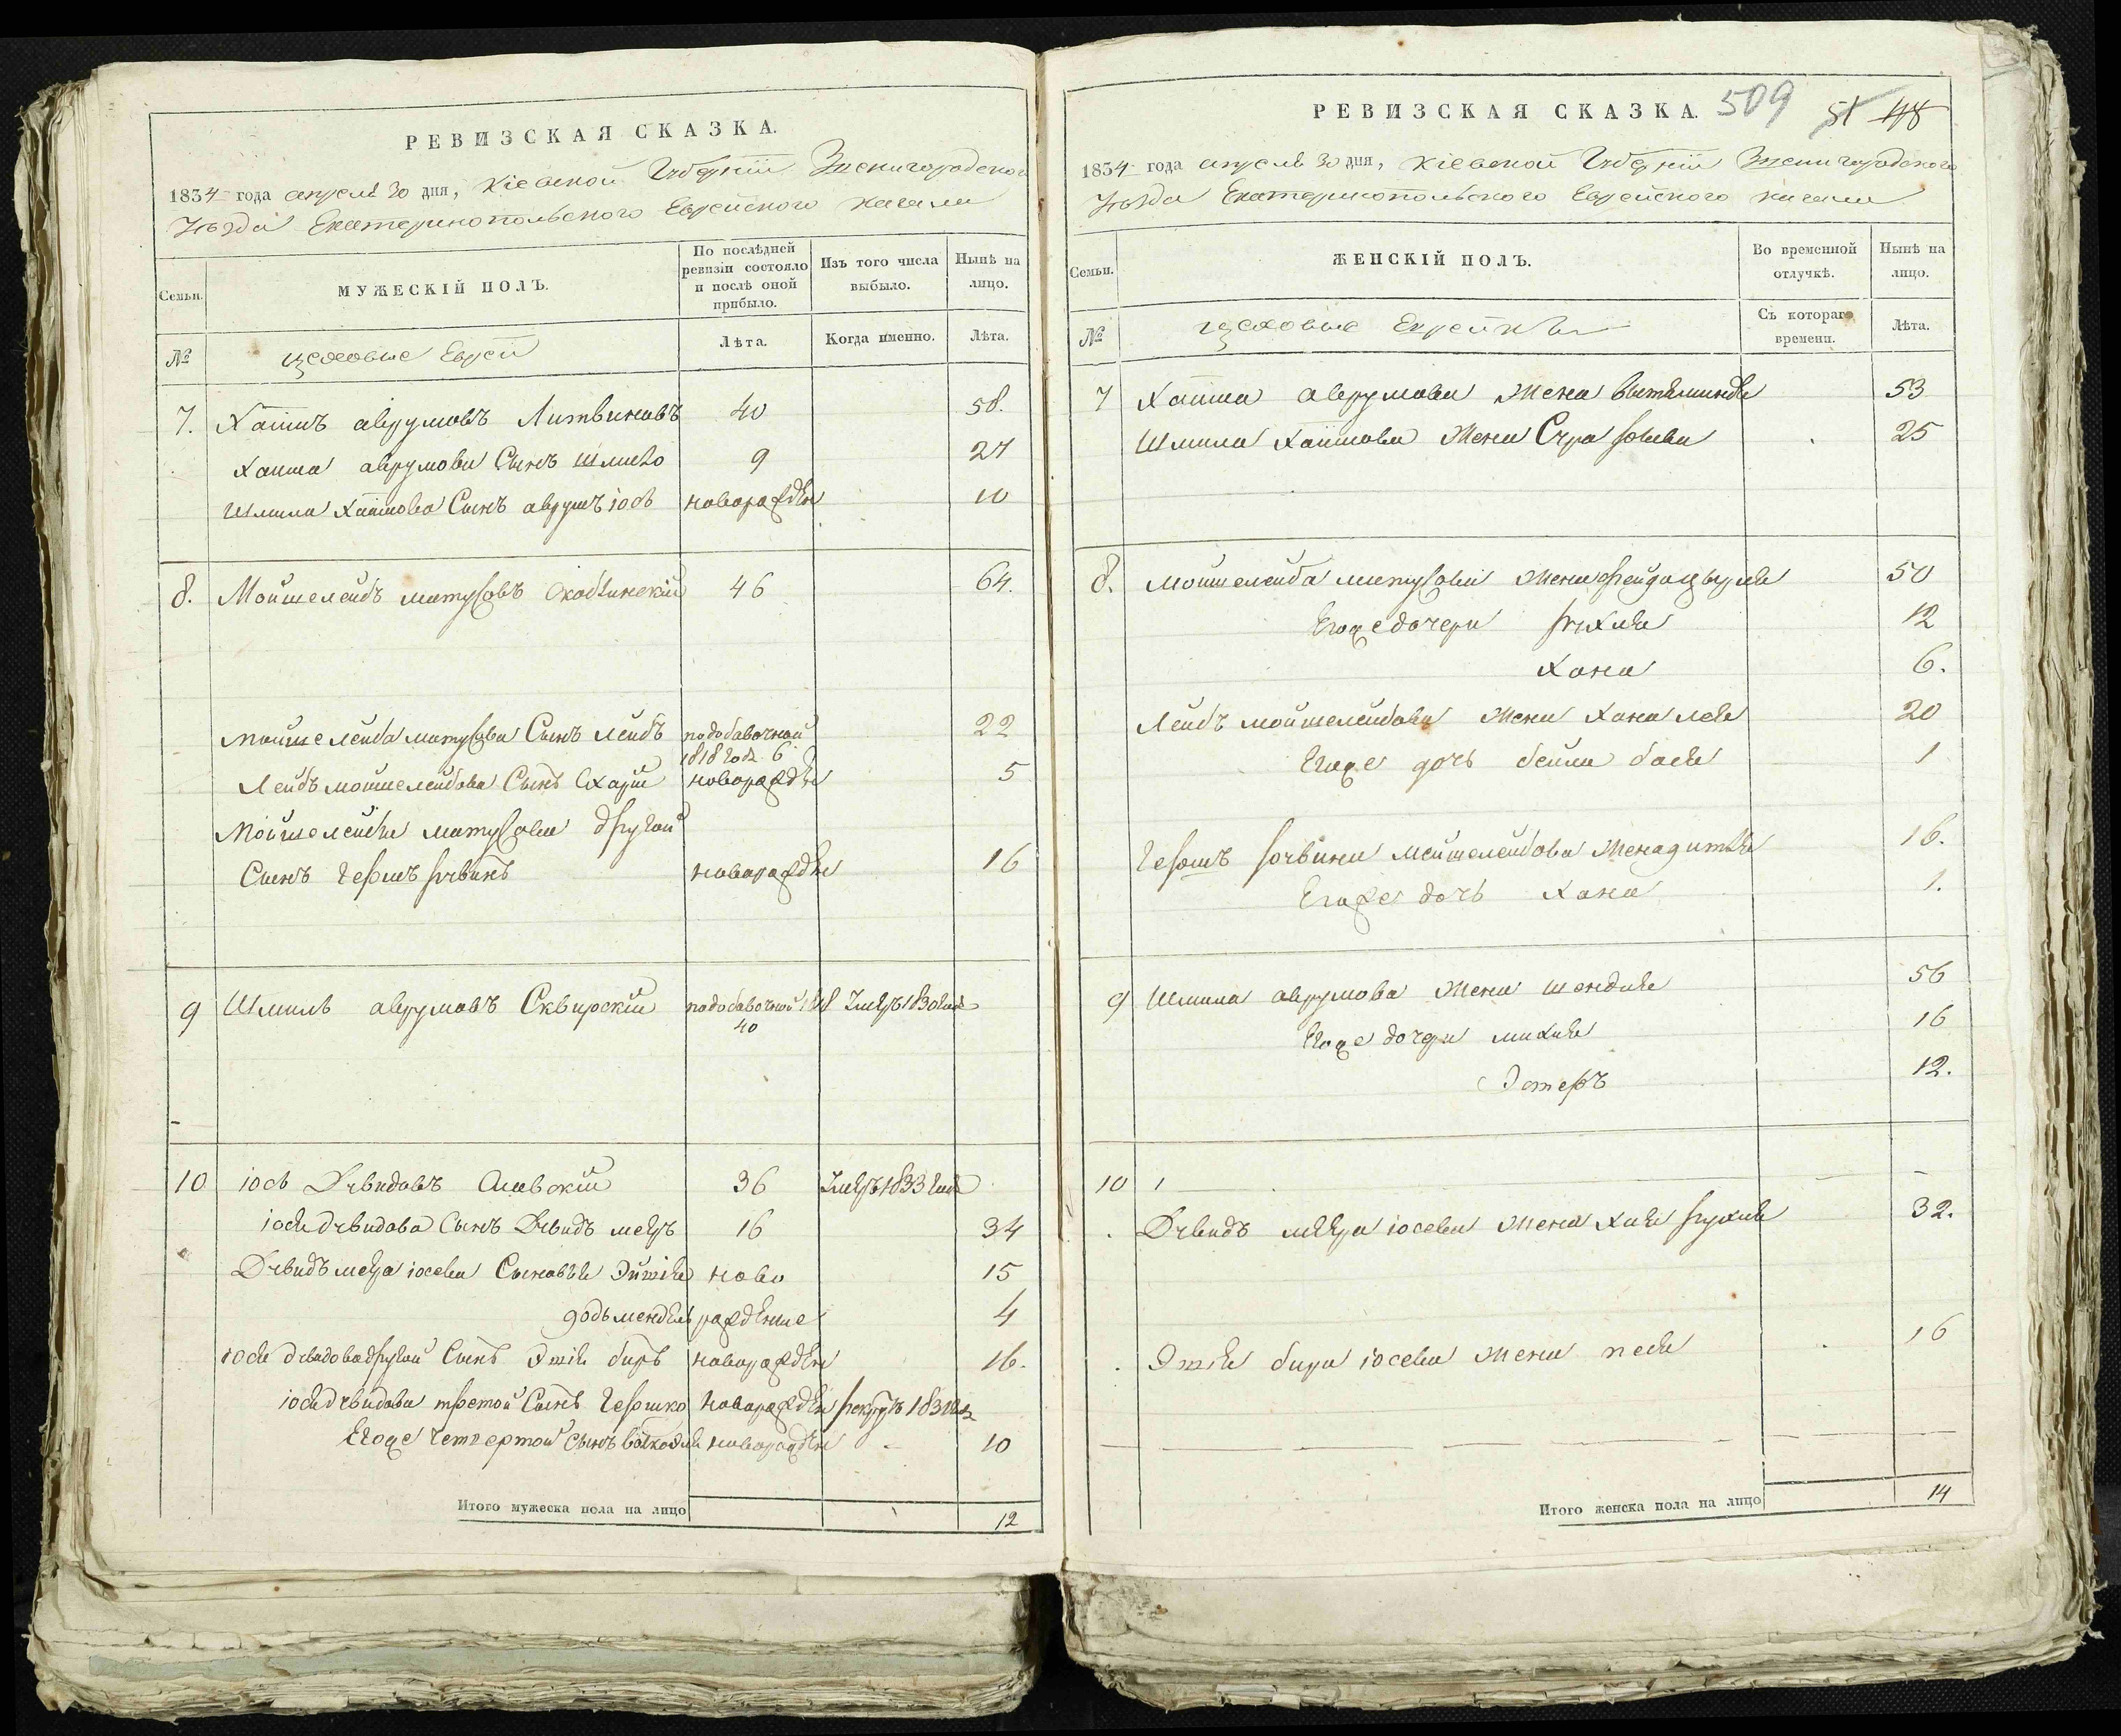 РЕВИЗСКАЯ СКАЗКА.
1834 года апреля 30 дня, Кіевской Губерніи Звенигородского
Уѣзда Екатеринопольского Еврейского кагала
Семьи.
МУЖЕСКІЙ ПОЛЪ.
По послѣдней ревизіи состояло и послѣ оной прибыло.
Изъ того числа выбыло.
Нынѣ на лицо.
№
цеховые Евреи
Лѣта.
Когда именно.
Лѣта.
7. Хаимъ аврумовъ Литвиновъ 40 58.
Хаима аврумова Сынъ Шмилю 9 27
Шмиля Хаимова Сынъ аврумъ іось новорожденъ 10
8. Мойшелейбъ матусовъ 46 64.
Мойшелейба матусова Сынъ Лейбъ подобавочной 1818 года 6 22
Лейбъ мойшелейбова Сынъ новорожденъ 5
Мойшелейба матусова другой
Сынъ Гершъ новорожденъ 16
9 Шмиль аврумовъ Сквирскій подобавочной 1818 40 Умеръ 1830 года
10 іось Дувидовъ 36 Умеръ 1833 года
іося дувидова Сынъ Дувидъ мееръ 16 34
Дувидъ меера іосева Сыновья ново 15
мендель рожденые 4
іося дувидова другой Сынъ новорожденъ 16.
іося дувидова третой Сынъ Гершко новорожденъ
Егоже Четвертой Сынъ новорожденъ 10
Итого мужеска пола на лицо
12
РЕВИЗСКАЯ СКАЗКА.
509 51 48
1834 года апреля 30 дня, Кіевской Губерніи Звенигородского
Уѣзда Екатеринопольского Еврейского кагала
Семьи.
ЖЕНСКІЙ ПОЛЪ.
Во временной отлучкѣ.
Нынѣ на лицо.
№
цеховые Еврейки
Съ котораго времени.
Лѣта.
7 Хаима аврумова Жена 53
Шмиля Хаимова Жена Сура 25
8. Мойшелейба матусова Жена 50
Егоже дочери рухля 12
Хана 6.
Лейбъ мойшелейбова Жена Хана лея 20
Егоже дочь бейла бася 1
Гершъ рувина мойшелейбова Жена 16.
Егоже дочь Хана 1.
9 Шмиля аврумова Жена шендля 56
Егоже дочери 16
Эстеръ 12.
10
Дувидъ меера іосева Жена 32.
іосева Жена песя 16
Итого женска пола на лицо
14